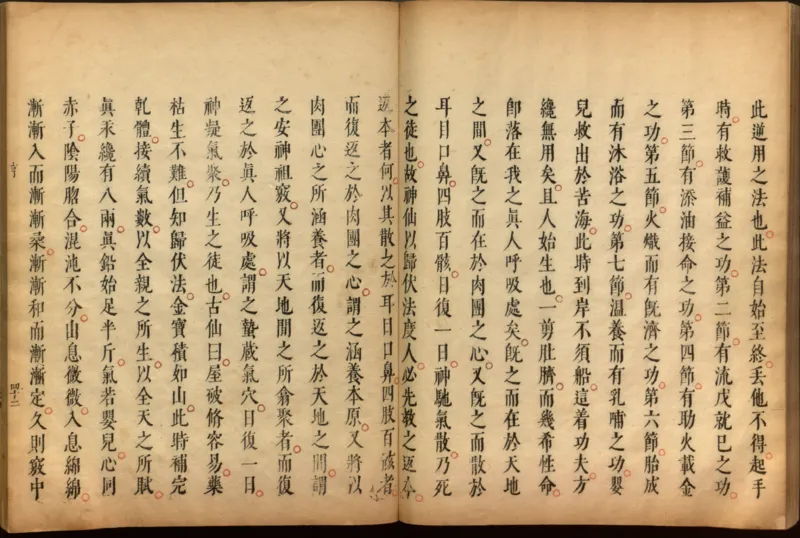 此逆用之法也此法自始至終丟他不得起手
時有救護補益之功第二節有流戊就巳之功
第三節有添油接命之功第四節有助火載金
之功第五節火熾而有旣濟之功第六節胎成
而有沐浴之功第七節溫養而有乳哺之功嬰
兒救出於苦海此時到岸不須船這着功夫方
纔無用矣且人始生也一剪肚臍而幾希性命
卽落在我之眞人呼吸處矣旣之而在於天地
之間又旣之而在於肉團之心又旣之而散於
耳目口鼻四肢百骸日復一日神馳氣散乃死
之徒也故神仙以歸伏法度人必先教之返本
返本者何以其散之於耳目口鼻四肢百骸者
而復返之於肉團之心謂之涵養本原又將以
肉團心之所涵養者而復返之於天地之間謂
之安神祖竅又將以天地間之所翕聚者而復
返之於眞人呼吸處謂之蟄藏氣穴日復一日
神凝氣聚乃生之徒也古仙曰屋破修容易藥
枯生不難但知歸伏法金寶積如山此時補完
乾體接續氣數以全親之所生以全天之所賦
眞汞纔有八兩眞鉛始足半斤氣若嬰兒心同
赤子陰陽脗合混沌不分出息微微入息綿綿
漸漸入而漸漸柔漸漸和而漸漸定久則竅中
四十二